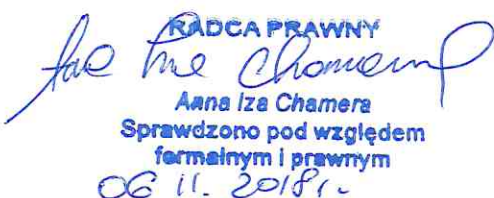 RADCA PRAWNY
Chamera
Anna Iza Chamera
Sprawdzono pod względem
formalnym i prawnym
06 11. 2018 r.